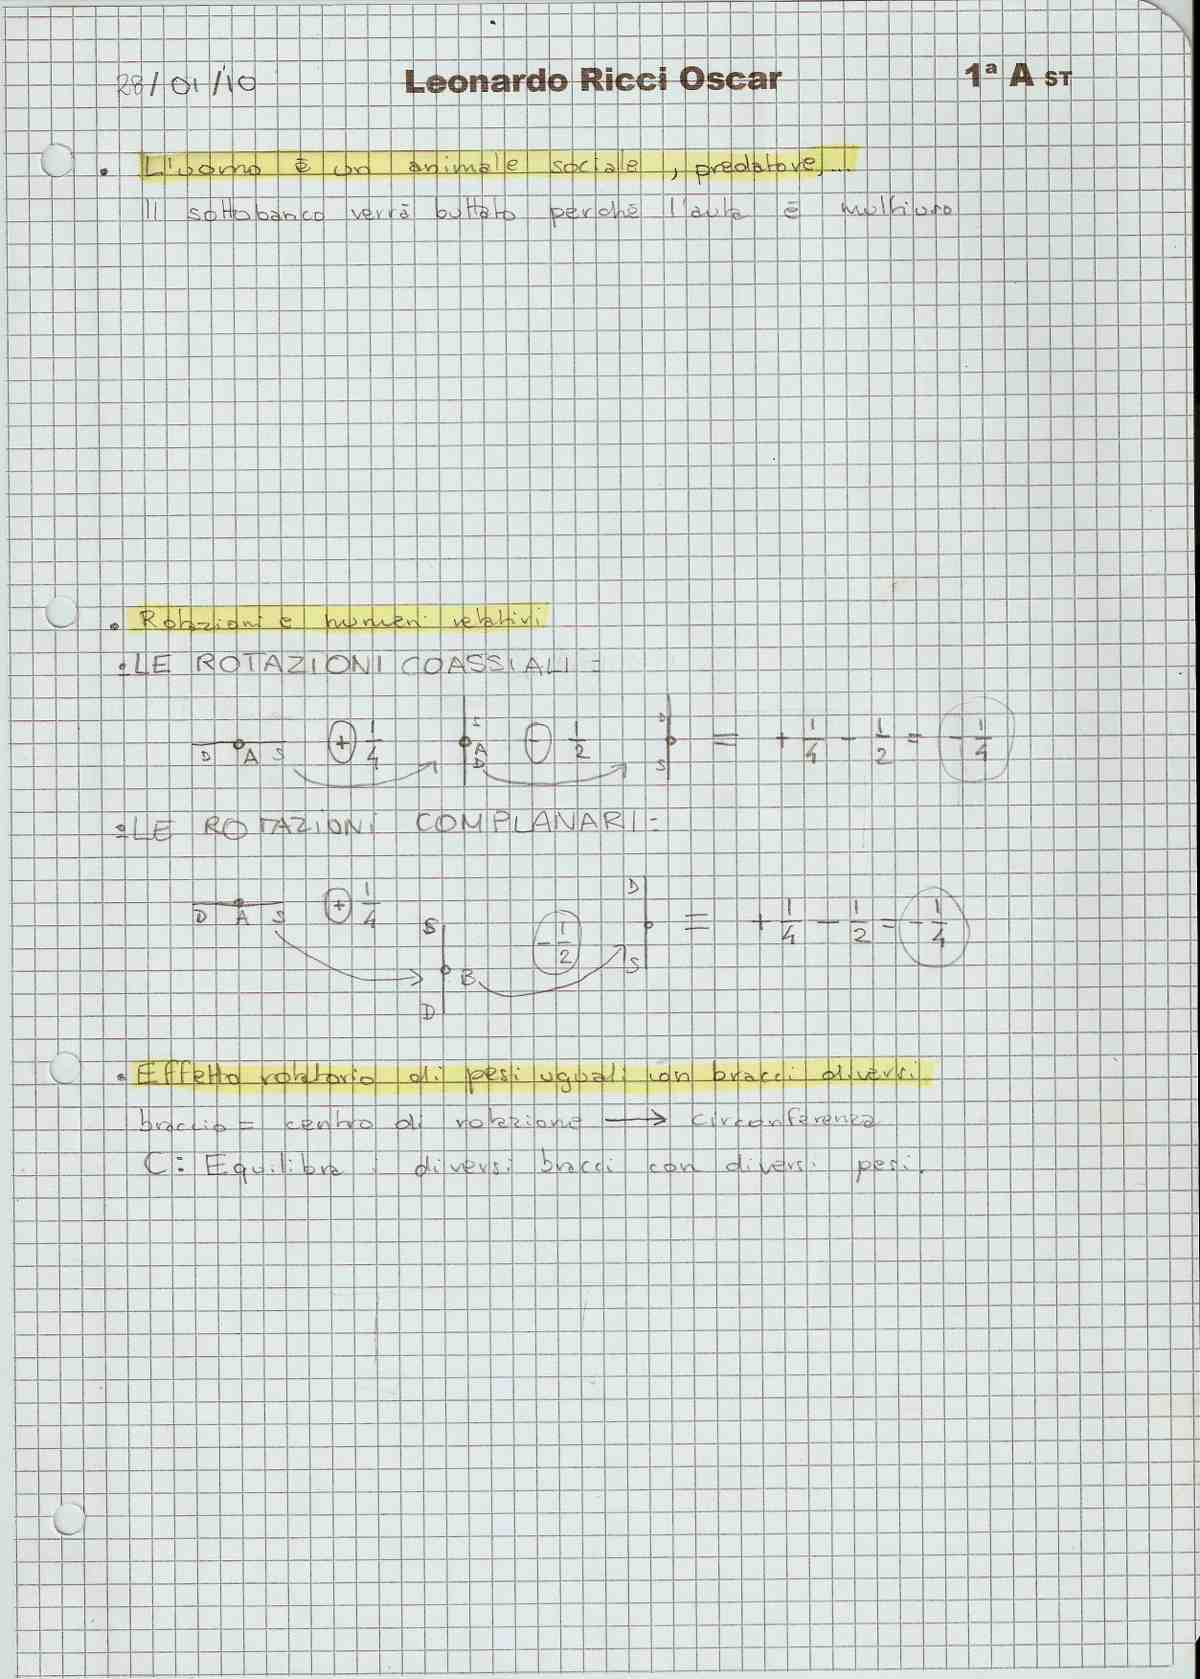 28/01/10 Leonardo Ricci Oscar 1ª A ST
• L'uomo è un animale sociale, predatore,...
Il sottobanco verrà buttato perché l'aula è multiuso
• Rotazioni e numeri relativi
:LE ROTAZIONI COASSIALI:
D A S + 1/4 S A D - 1/2 D S = + 1/4 - 1/2 = - 1/4
:LE ROTAZIONI COMPLANARI:
D A S + 1/4 S B D - 1/2 D S = + 1/4 - 1/2 = - 1/4
• Effetto rotatorio di pesi uguali con bracci diversi
braccio = centro di rotazione → circonferenza
C: Equilibra i diversi bracci con diversi pesi.